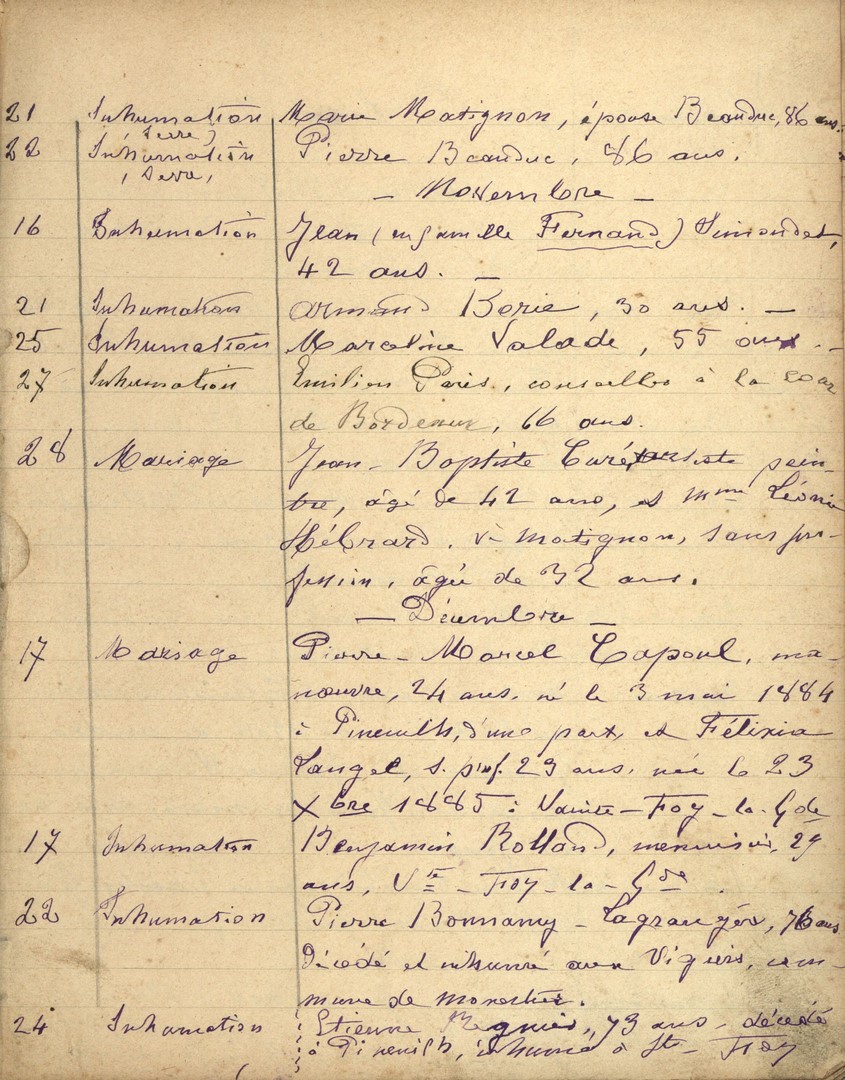 21 Inhumation Marie Matignon, épouse Beauduc, 86 ans.
(Terre)
22 Inhumation Pierre Beauduc, 86 ans.
(Terre)
— Novembre —
16 Inhumation Jean (en famille Fernand) Simondet,
42 ans. —
21 Inhumation Armand Borie, 30 ans. —
25 Inhumation Marceline Valade, 55 ans. —
27 Inhumation Emilien Paris, conseiller à la cour
de Bordeaux, 66 ans.
28 Mariage Jean-Baptiste Curé, artiste pein-
tre, âgé de 42 ans, et Mme Léonie
Hébrard, Ve Matignon, sans pro-
fession, âgée de 32 ans.
— Décembre —
17 Mariage Pierre-Marcel Capoul, ma-
nœuvre, 24 ans, né le 3 mai 1884
à Pineuilh, d'une part, et Félixia
Langel, s. prof. 23 ans, née le 23
Xbre 1885 à Sainte-Foy-la-Gde
17 Inhumation Benjamin Rolland, menuisier, 29
ans, Ste-Foy-la-Gde.
22 Inhumation Pierre Bonnamy-Lagranges, 76 ans
décédé et inhumé aux Viguiers, com-
mune de Monestier.
24 Inhumation Etienne Regnier, 73 ans, décédé
à Pineuilh, inhumé à Ste-Foy